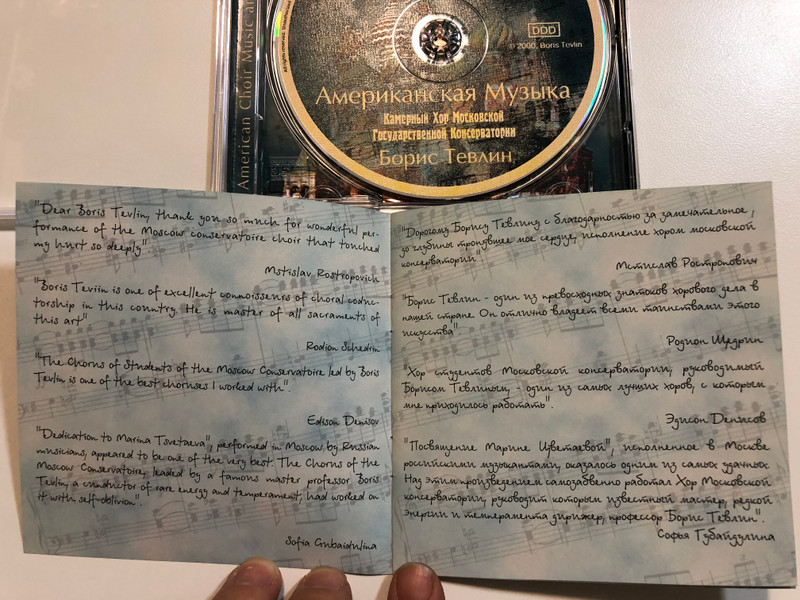 American Choir Music
All rights reserved.
DDD
© 2000, Boris Tevlin
Американская Музыка
Камерный Хор Московской
Государственной Консерватории
Борис Тевлин
"Dear Boris Tevlin, thank you so much for wonderful per-
formance of the Moscow conservatoire choir that touched
my hurt so deeply"
Mstislav Rostropovich
"Boris Tevlin is one of excellent connoisseurs of choral coduc-
torship in this country. He is master of all sacraments of
this art"
Rodion Schedrin
"The Chorus of Students of the Moscow Conservatoire led by Boris
Tevlin is one of the best choruses I worked with".
Edison Denisov
"Dedication to Marina Tsvetaeva", performed in Moscow by Russian
musicians, appeared to be one of the very best. The Chorus of the
Moscow Conservatoire, leaded by a famous master professor Boris
Tevlin, a conductor of rare energy and temperament, had worked on
it with self-oblivion".
Sofia Gubaidulina
"Дорогому Борису Тевлину с благодарностью за замечательное,
до глубины тронувшее мое сердце, исполнение хором московской
консерватории."
Мстислав Ростропович
"Борис Тевлин - один из превосходных знатоков хорового дела в
нашей стране. Он отлично владеет всеми таинствами этого
искусства"
Родион Щедрин
"Хор студентов Московской консерватории, руководимый
Борисом Тевлиным, - один из самых лучших хоров, с которым
мне приходилось работать".
Эдисон Денисов
"Посвящение Марине Цветаевой", исполненное в Москве
российскими музыкантами, оказалось одним из самых удачных.
Над этим произведением самозабвенно работал Хор Московской
консерватории, руководит которым известный мастер, редкой
энергии и темперамента дирижер, профессор Борис Тевлин".
Софья Губайдулина